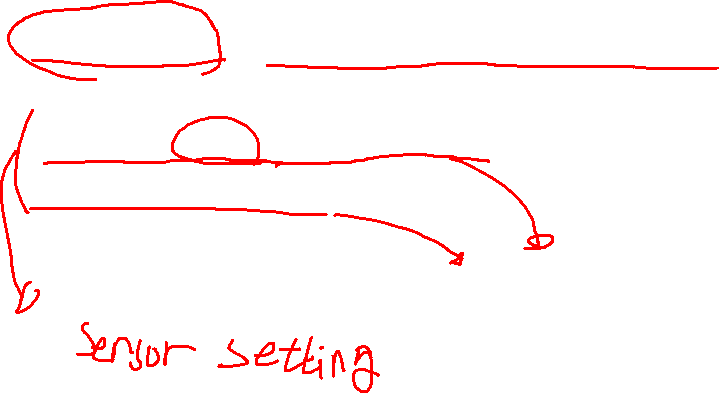 Sensor setting